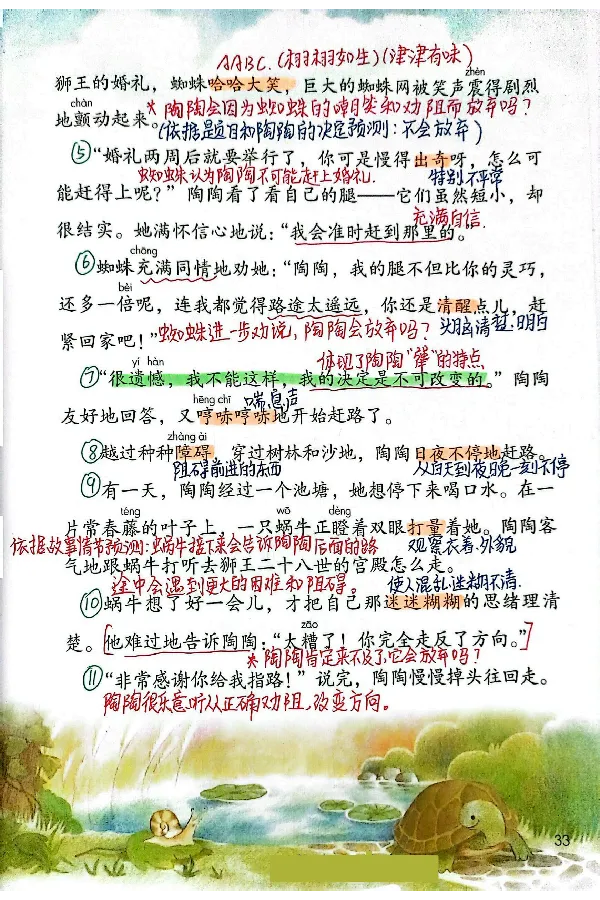 AABC.(栩栩如生)(津津有味)
zhèn
狮王的婚礼，蜘蛛哈哈大笑，巨大的蜘蛛网被笑声震得剧烈
chàn
地颤动起来。*陶陶会因为蜘蛛的嘲笑和劝阻而放弃吗?
(依据是题目和陶陶的决定预测:不会放弃)
⑤“婚礼两周后就要举行了，你可是慢得出奇呀，怎么可
蜘蛛认为陶陶不可能赶上婚礼. 特别不平常
能赶得上呢？”陶陶看了看自己的腿——它们虽然短小，却
充满自信.
很结实。她满怀信心地说：“我会准时赶到那里的。”
chōng
⑥蜘蛛充满同情地劝她：“陶陶，我的腿不但比你的灵巧，
bèi
还多一倍呢，连我都觉得路途太遥远，你还是清醒点儿，赶
紧回家吧！”蜘蛛进一步劝说,陶陶会放弃吗? 头脑清楚.明白
yí hàn 体现了陶陶“犟”的特点
⑦“很遗憾，我不能这样，我的决定是不可改变的。”陶陶
hēng chī 喘息声
友好地回答，又哼哧哼哧地开始赶路了。
zhàng ài
⑧越过种种障碍，穿过树林和沙地，陶陶日夜不停地赶路。
阻碍前进的东西 从白天到夜晚一刻不停
⑨有一天，陶陶经过一个池塘，她想停下来喝口水。在一
téng wō dèng
片常春藤的叶子上，一只蜗牛正瞪着双眼打量着她。陶陶客
依据故事情节预测:蜗牛接下来会告诉陶陶后面的路 观察衣着.外貌
气地跟蜗牛打听去狮王二十八世的宫殿怎么走。
途中会遇到更大的困难和阻碍. 使人混乱迷糊不清.
⑩蜗牛想了好一会儿，才把自己那迷迷糊糊的思绪理清
zāo
楚。[他难过地告诉陶陶：“太糟了！你完全走反了方向。”]
*陶陶肯定来不及了,它会放弃吗?
⑪“非常感谢你给我指路！”说完，陶陶慢慢掉头往回走。
陶陶很乐意听从正确劝阻,改变方向.
33